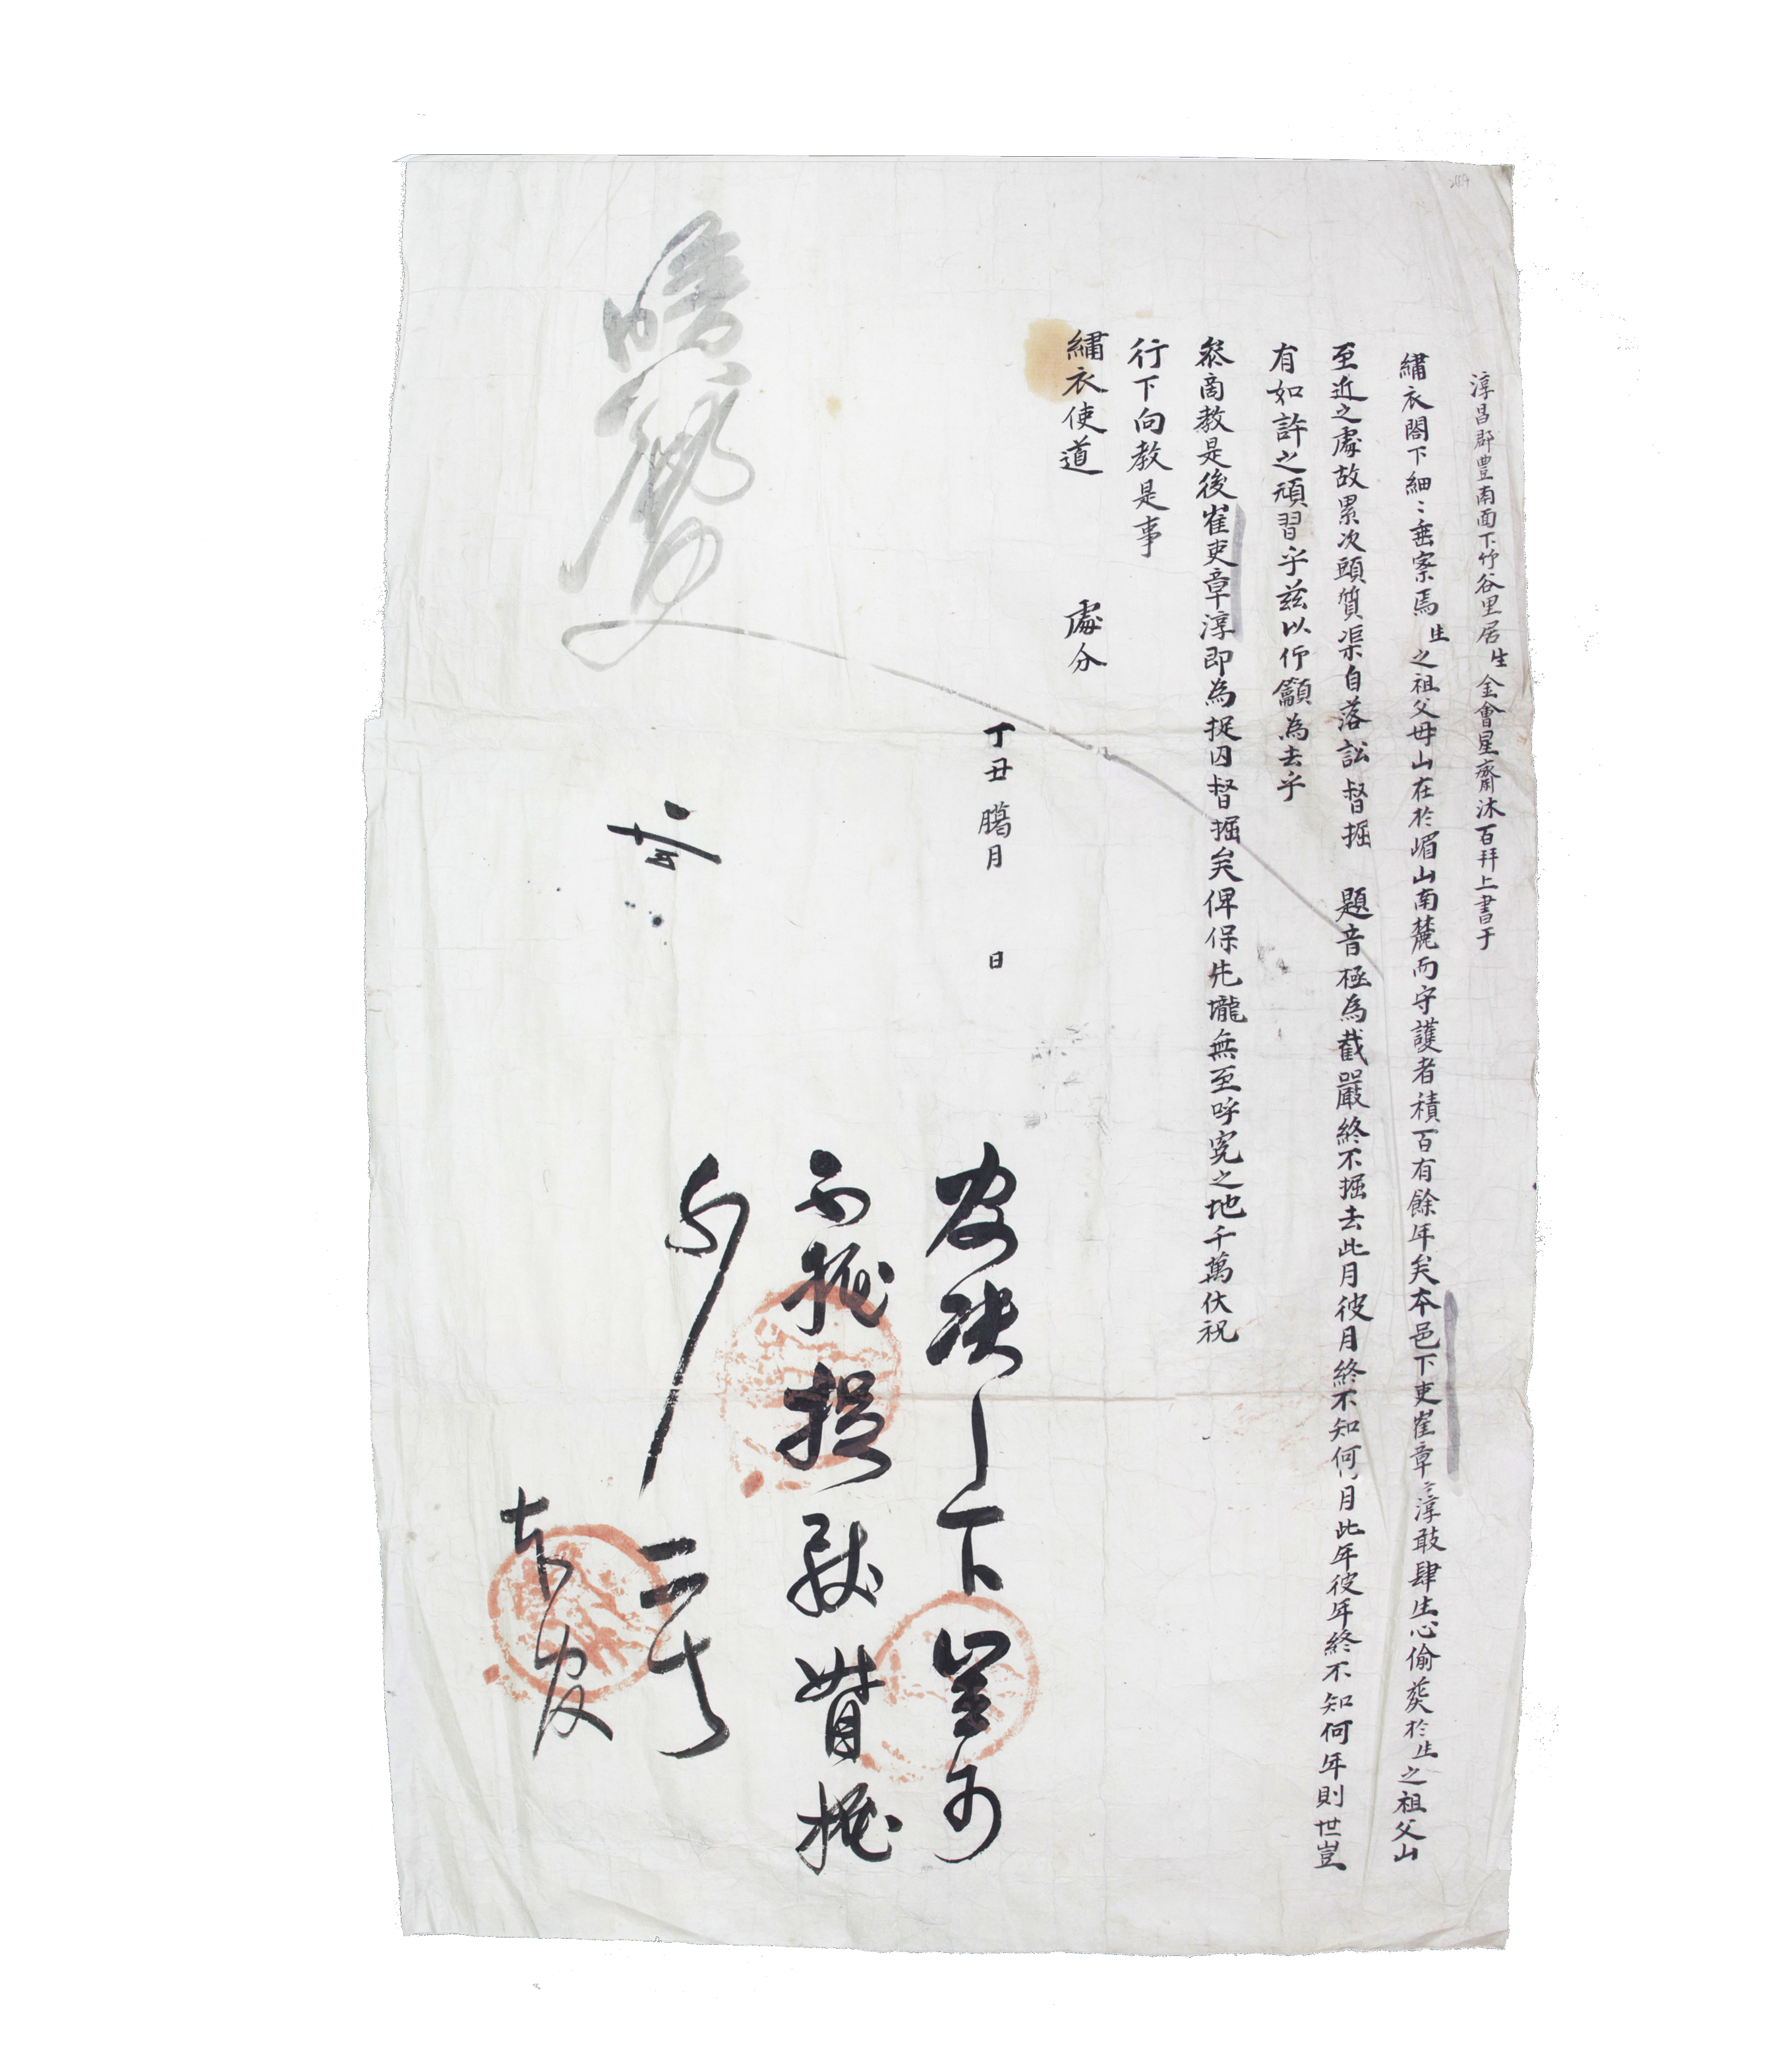 淳昌郡豊南面下竹谷里居生金會星齋沐百拜上書于
繡衣閤下細〻垂察焉生之祖父母山在於嵋山南麓而守護者積百有餘年矣本邑下吏崔章淳敢肆生心偷葬於生之祖父山
至近之處故累次頭質渠自落訟督掘 題音極為截嚴終不掘去此月彼月終不知何月此年彼年終不知何年則世豈
有如許之頑習乎茲以仰籲為去乎
叅商教是後崔吏章淳即為捉囚督掘矣俾保先壠無至呼寃之地千萬伏祝
行下向教是事
繡衣使道 處分
丁丑臈月 日
不掘捉致督掘